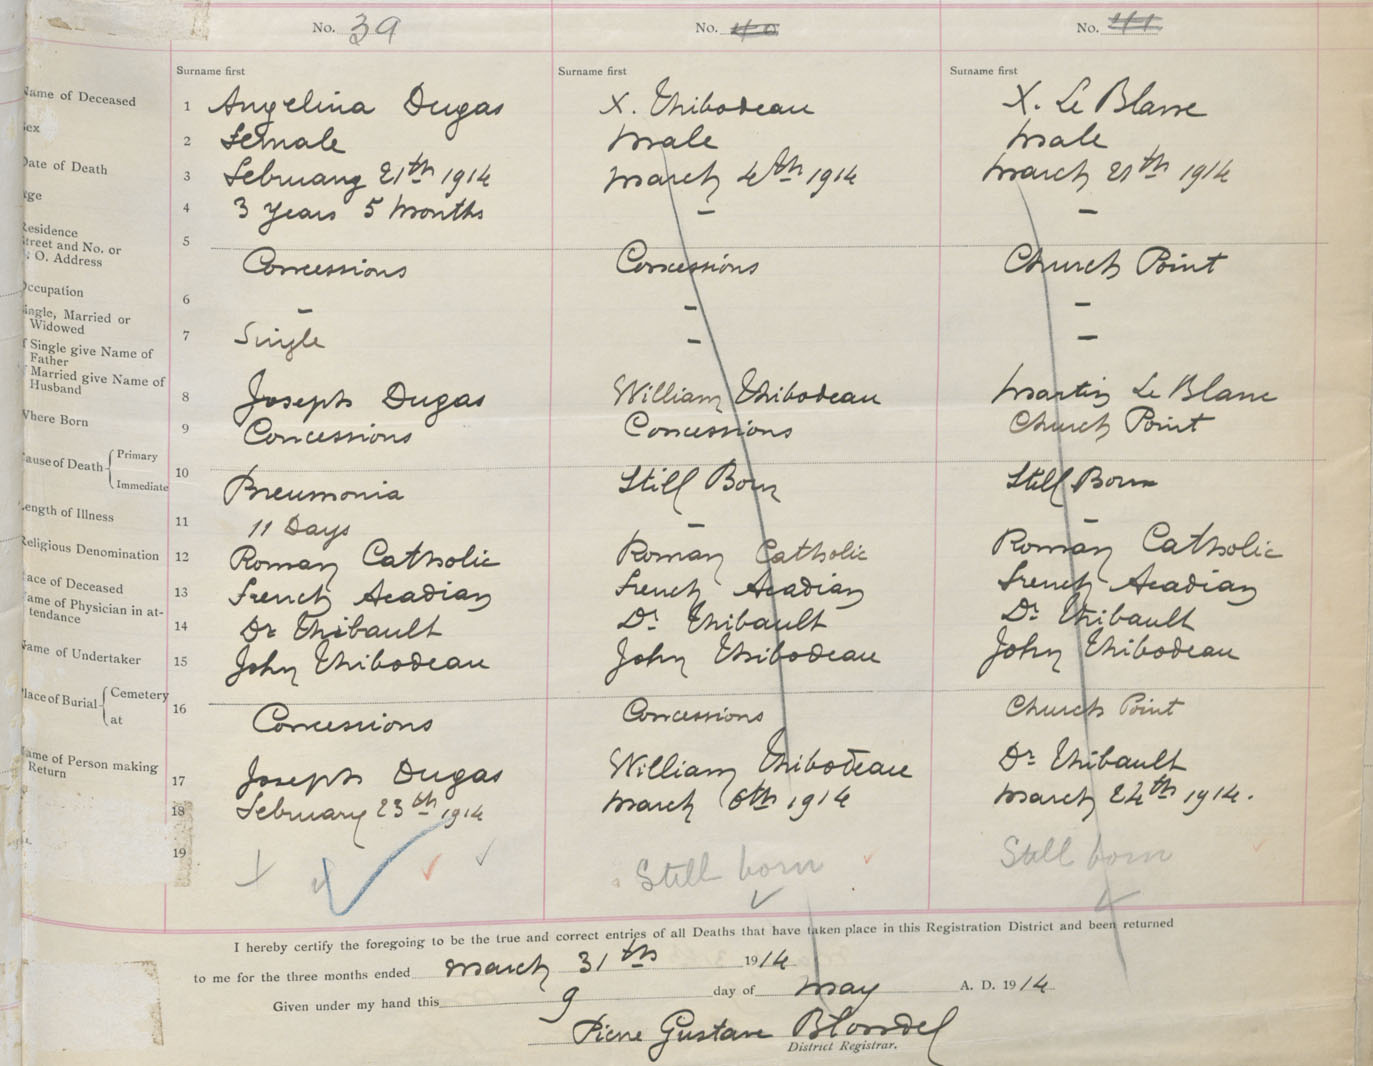 No. 39 No. 40 No. 41
Surname first Surname first Surname first
Name of Deceased 1 Angelina Dugas X. Thibodeau X. Le Blanc
Sex 2 Female Male Male
Date of Death 3 February 21th 1914 March 4th 1914 March 21th 1914
Age 4 3 Years 5 Months - -
Residence
Street and No. or 5
P. O. Address Concessions Concessions Church Point
Occupation 6 - - -
Single, Married or
Widowed 7 Single - -
If Single give Name of
Father
If Married give Name of
Husband 8 Joseph Dugas William Thibodeau Martin Le Blanc
Where Born 9 Concessions Concessions Church Point
Cause of Death Primary 10
Immediate Pneumonia Still Born Still Born
Length of Illness 11 11 Days - -
Religious Denomination 12 Roman Catholic Roman Catholic Roman Catholic
Race of Deceased 13 French Acadian French Acadian French Acadian
Name of Physician in at-
tendance 14 Dr Thibault Dr Thibault Dr Thibault
Name of Undertaker 15 John Thibodeau John Thibodeau John Thibodeau
Place of Burial Cemetery 16
at Concessions Concessions Church Point
Name of Person making
Return 17 Joseph Dugas William Thibodeau Dr Thibault
18 February 23th 1914 March 6th 1914 March 24th 1914.
19 Still born Still born
I hereby certify the foregoing to be the true and correct entries of all Deaths that have taken place in this Registration District and been returned
to me for the three months ended March 31th 1914
Given under my hand this 9 day of May A. D. 1914
Pierre Gustave Blondel
District Registrar.